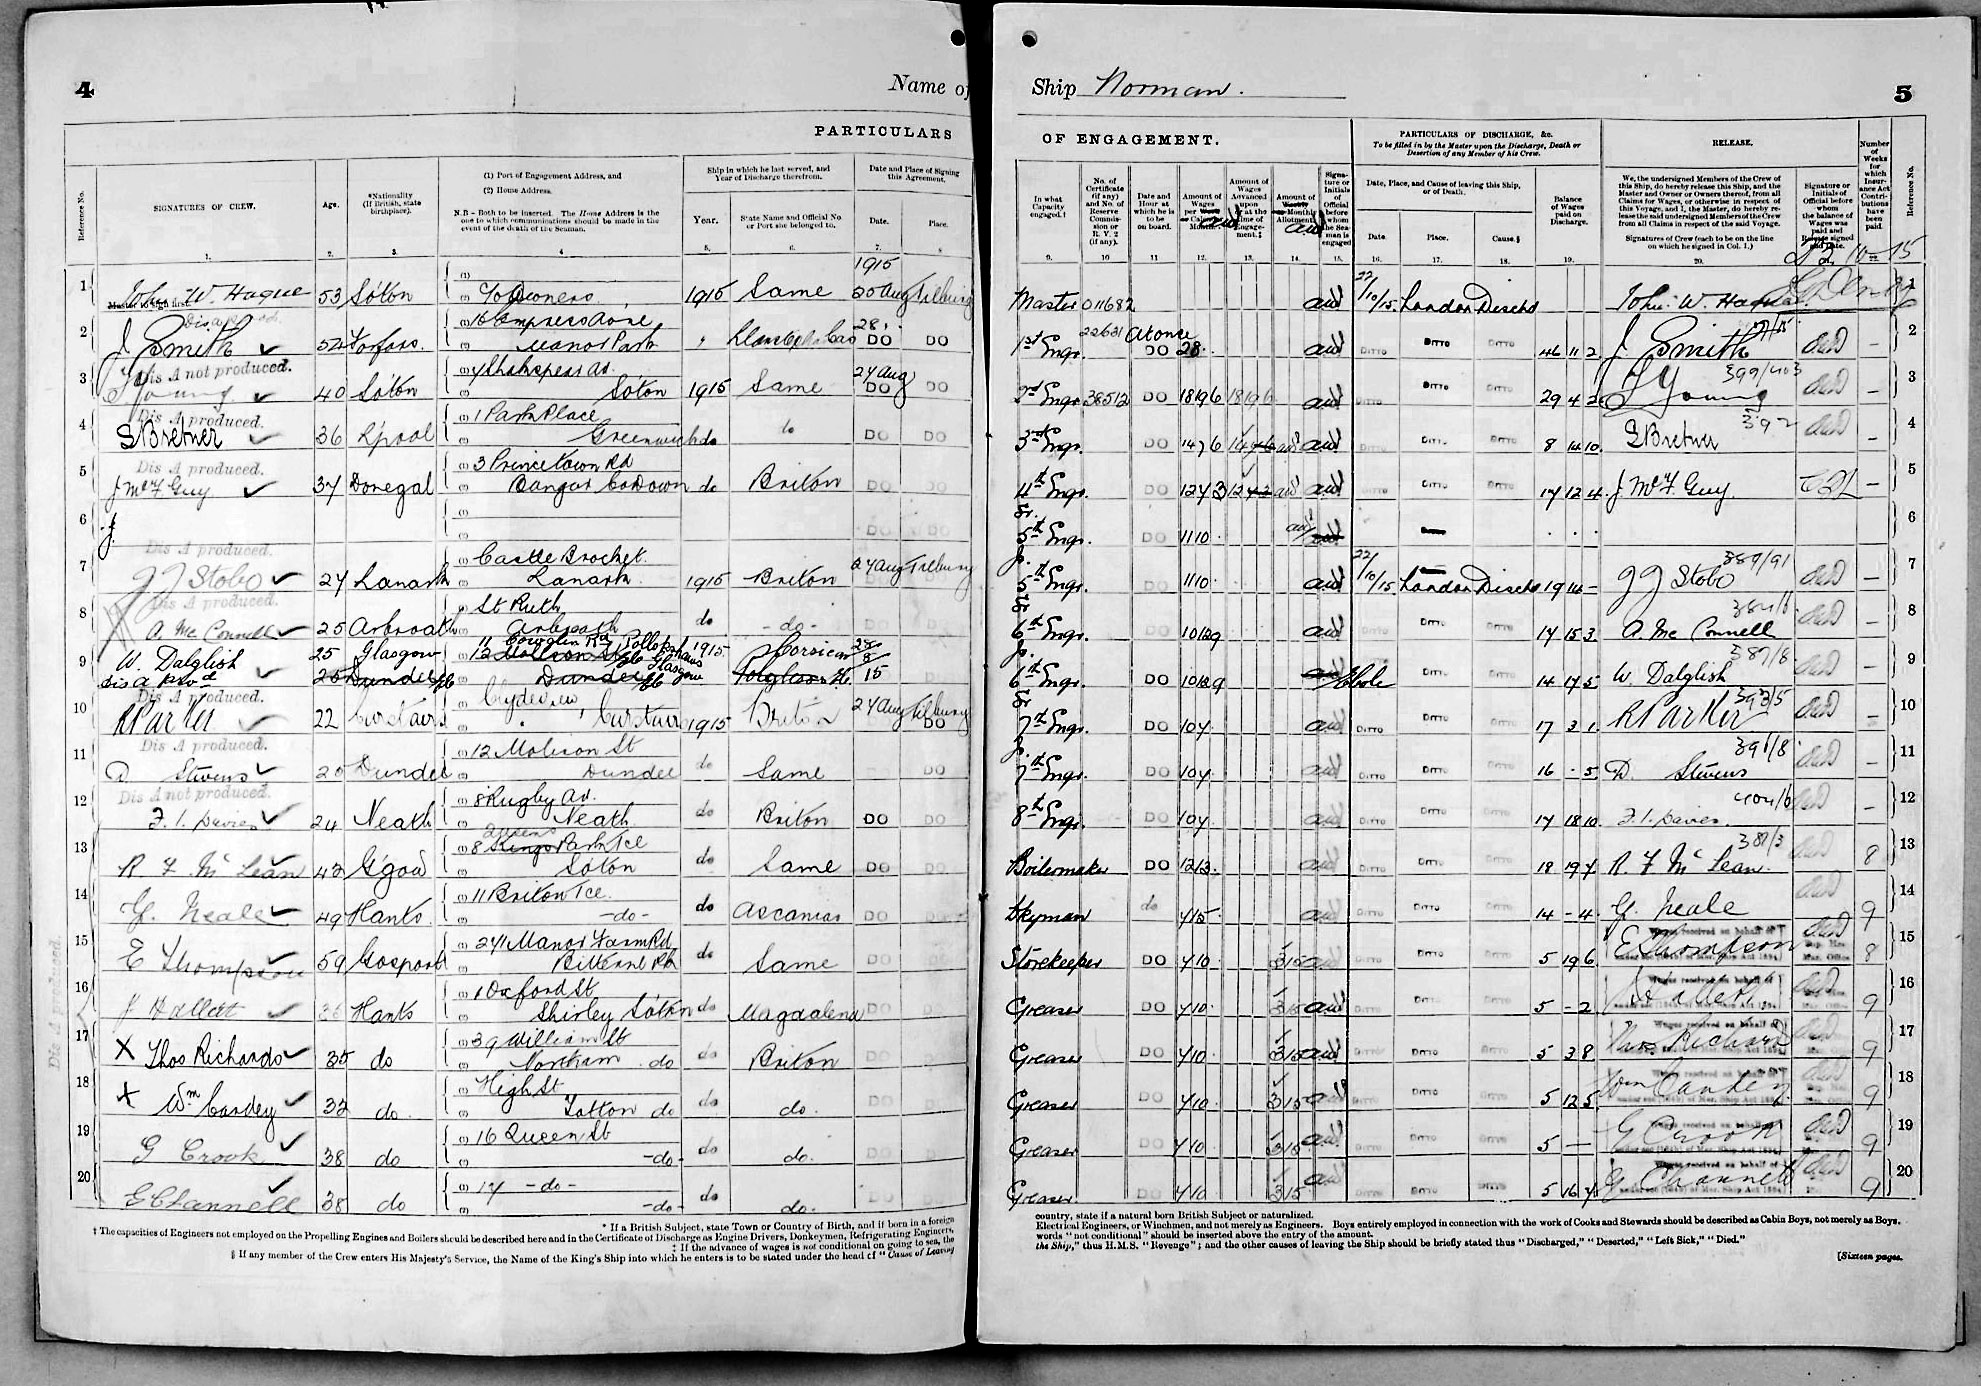 4
Name of
Ship Norman.
5
PARTICULARS
OF ENGAGEMENT.
PARTICULARS OF DISCHARGE, &c.
To be filled in by the Master upon the Discharge, Death or
Desertion of any Member of his Crew.
RELEASE.
Reference No.
SIGNATURES OF CREW.
Age.
*Nationality
(If British, state
birthplace).
(1) Port of Engagement Address, and
(2) Home Address.
N.B - Both to be inserted. The Home Address is the
one to which communications should be made in the
event of the death of the Seaman.
Ship in which he last served, and
Year of Discharge therefrom.
Year.
State Name and Official No.
or Port she belonged to.
Date and Place of Signing
this Agreement.
Date.
Place.
In what
Capacity
engaged.†
No. of
Certificate
(if any)
and No. of
Reserve
Commis-
sion or
R. V. 2
(if any).
Date and
Hour at
which he is
to be
on board.
Amount of
Wages
Amount of
Wages
Advanced
upon
Amount of
Monthly
Allotment.
Signa-
ture or
Initials
of
Official
before
whom
the Sea-
man is
engaged
Date, Place, and Cause of leaving this Ship,
or of Death.
Date.
Place.
Cause.§
Balance
of Wages
paid on
Discharge.
We, the undersigned Members of the Crew of
this Ship, do hereby release this Ship, and the
Master and Owner or Owners thereof, from all
Claims for Wages, or otherwise in respect of
this Voyage, and I, the Master, do hereby re-
lease the said undersigned Members of the Crew
from all Claims in respect of the said Voyage.
Signatures of Crew (each to be on the line
on which he signed in Col. 1.)
Signature or
Initials of
Official before
whom
the balance of
Wages was
paid and
Release signed
Number
of
Weeks
for
which
Insur-
ance Act
Contri-
butions
have
been
paid.
Reference No.
1. 2. 3. 4. 5. 6. 7. 8 9. 10 11. 12. 13. 14. 15. 16. 17. 18. 19. 20.
1915
1 John W. Hague 53 Soton 1915 Same 20 Aug Tilbury Master 011682 22/10/15 London Dischd John W. Hague 1
2 J Smith 52 Forfars. Manor Park DO DO 1st Engr. 22631 At once DO 28 DITTO DITTO DITTO 46 11 2 J Smith 2
Dis A not produced.
3 J Young 40 Soton Shakspear Av. Soton 1915 Same 24 Aug DO DO 2nd Engr. 38512 DO 18 19 6 29 4 2 J Young 399/403 3
Dis A produced.
4 S Bretner 36 L'pool 1 Park Place Greenwich do DO DO 3rd Engr. DO DITTO DITTO 8 14 10 S Bretner 392 4
Dis A produced.
5 J McF Guy 37 Donegal 3 Princetown Rd Bangor Co Down do Briton DO 4th Engr. DO DITTO DITTO 17 12 4 J McF. Guy. 5
6 J. DO Sr. 5th Engr. DO 11 10 6
Dis A produced.
7 J J Stobo 24 Lanark Castle Brocket. Lanark. 1915 Briton 24 Aug Tilbury Jr. 5th Engr. DO 11 10 22/10/15 London Dischd 19 14 - J J Stobo 389/91 7
Dis A produced.
8 A. McConnell 25 Arbroath St Ruth Arbroath do - do - Sr 6th Engr. DO 10 12 9 DITTO DITTO 17 15 3 A. McConnell 8
9 W. Dalglish 25 Glasgow Pollokshaws Glasgow 1915 Corsican 28/8/15 Jr. 6th Engr. DO 10 12 9 DITTO DITTO 14 17 5 W. Dalglish 387/8 9
Dis A produced.
10 R Parker 22 Carstairs Clydeview, Carstairs 1915 Briton 24 Aug Tilbury DO Sr 7th Engr. DO 10 7 DITTO DITTO DITTO 17 3 1 R Parker 10
Dis A produced.
11 D Stevens 25 Dundee 12 Molison St Dundee do Same DO Jr. 7th Engr. DO 10 7 DITTO DITTO 16 - 5 D Stevens 391/8 11
Dis A not produced.
12 F. I. Davies 24 Neath 8 Rugby Av. Neath. do Briton DO DO 8th Engr. DO 10 7 DITTO DITTO DITTO 17 18 10 F. I. Davies 12
13 R. F McLean 42 G'gow 8 Queens Park Tce Soton do Same DO DO Boilermaker DO 12 13 DITTO DITTO DITTO 18 19 7 R. F McLean. 387/3 8 13
14 G. Neale 49 Hants. 11 Briton Tce. - do - do Ascanias DO DO do 7 15 DITTO DITTO DITTO 14 - 4 G. Neale 9 14
15 E Thompson 59 Gosport 271 Manor Farm Rd Bitterne Pk do Same DO Storekeeper DO 7 10 3 15 DITTO DITTO DITTO 5 19 6 E Thompson 8 15
16 J Hallett 36 Hants 1 Oxford St Shirley Soton do Magdalena DO Greaser DO 7 10 3 15 DITTO DITTO 5 - 2 J Hallett 9 16
17 X Thos Richards 35 do 39 William St Northam do do Briton DO Greaser DO 7 10 3 15 DITTO DITTO DITTO 5 3 8 Thos Richards 9 17
18 X Wm Cardey 32 do. High St Totton do do do. DO Greaser DO 7 10 3 15 DITTO DITTO 5 12 5 Wm Cardey 9 18
19 G Crook 38 do 16 Queen St - do - do do. DO Greaser DO 7 10 3 15 DITTO DITTO 5 - G Crook 9 19
20 E Channell 38 do 17 - do - - do - do do. DO Greaser DO 7 10 3 15 DITTO DITTO 5 16 7 Channell 9 20
Dis A produced.
* If a British Subject, state Town or Country of Birth, and if born in a foreign
country, state if a natural born British Subject or naturalized.
† The capacities of Engineers not employed on the Propelling Engines and Boilers should be described here and in the Certificate of Discharge as Engine Drivers, Donkeymen, Refrigerating Engineers,
Electrical Engineers, or Winchmen, and not merely as Engineers. Boys entirely employed in connection with the work of Cooks and Stewards should be described as Cabin Boys, not merely as Boys.
‡ If the advance of wages is not conditional on going to sea, the
words "not conditional" should be inserted above the entry of the amount.
§ If any member of the Crew enters His Majesty's Service, the Name of the King's Ship into which he enters is to be stated under the head of "Cause of Leaving
the Ship," thus H.M.S. "Revenge"; and the other causes of leaving the Ship should be briefly stated thus "Discharged," "Deserted," "Left Sick," "Died."
[Sixteen pages.